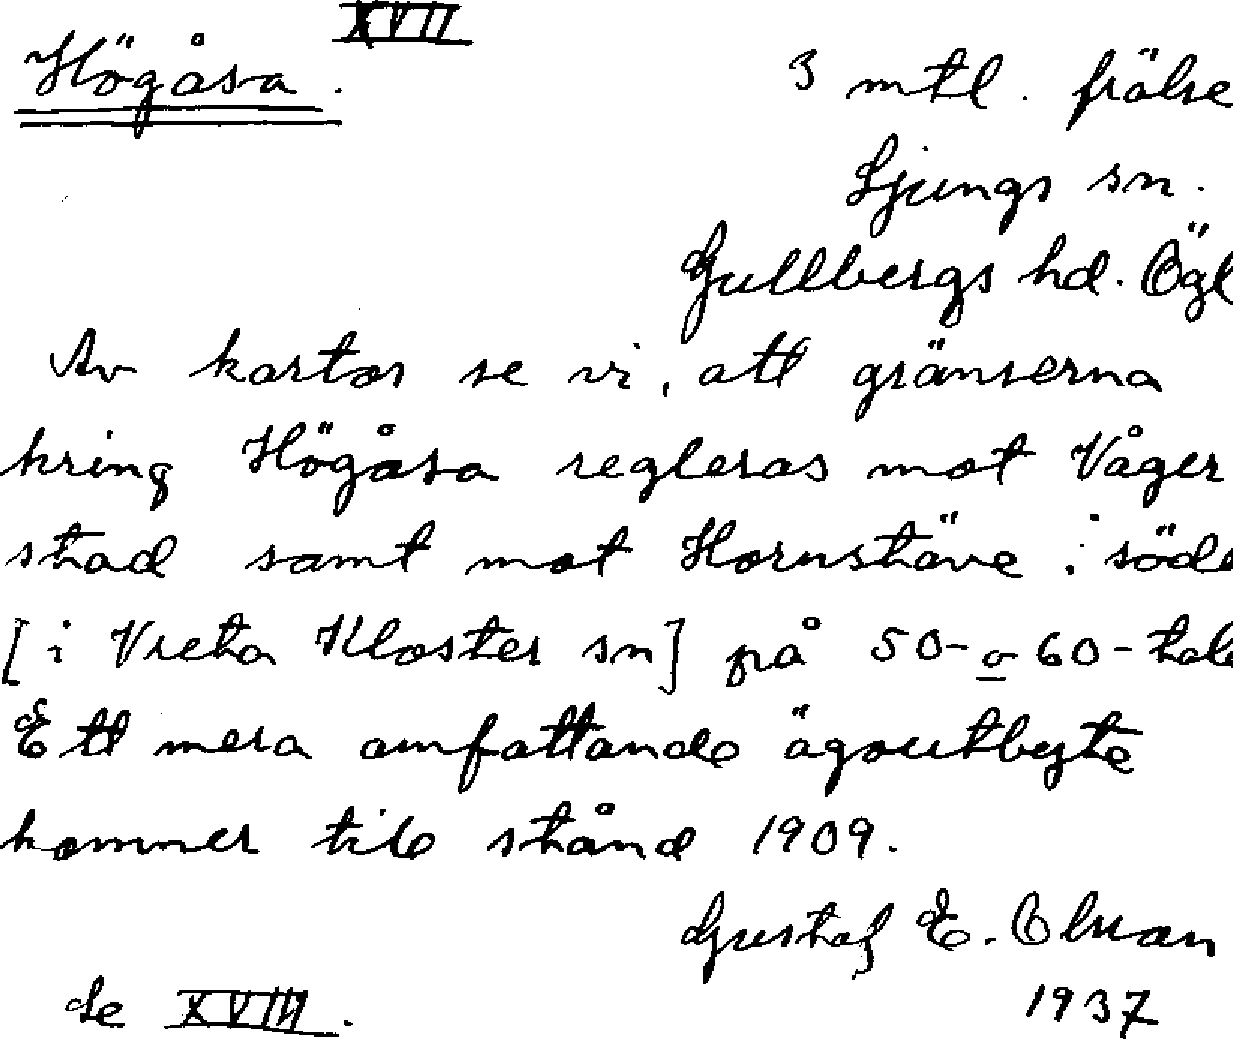 XVII
Högåsa. 3 mtl. frälse
Ljungs sn.
Gullbergs hd. Ögl
Av kartor se vi, att gränserna
kring Högåsa regleras mot Våger
stad samt mot Hornstäve i söde
[i Vreta Kloster sn] på 50- o 60-tale
Ett mera omfattande ägoutbyte
kommer till stånd 1909.
Gustaf E. Olsson
1937
Se XVIII.